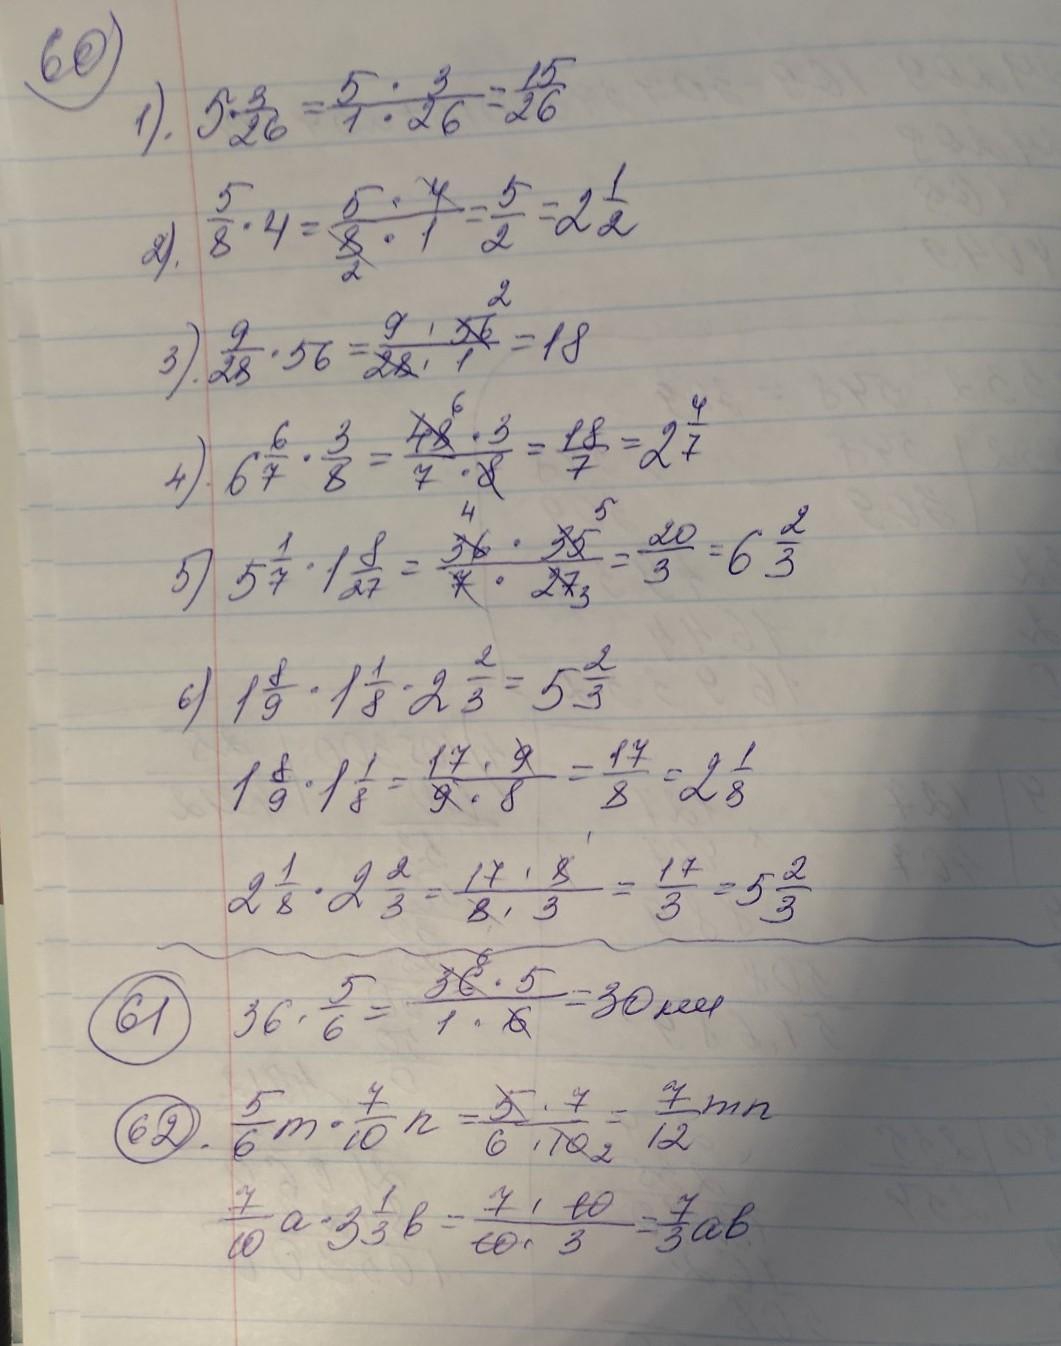 60
1). 5·3/26 = 5·3/1·26 = 15/26
2). 5/8·4 = 5·4/8·1 2 = 5/2 = 2 1/2
3). 9/28·56 = 9·56 2/28·1 = 18
4). 6 6/7·3/8 = 48 6·3/7·8 = 18/7 = 2 4/7
5) 5 1/7·1 8/27 = 36 4·35 5/7·27 3 = 20/3 = 6 2/3
6) 1 8/9·1 1/8·2 2/3 = 5 2/3
1 8/9·1 1/8 = 17·9/9·8 = 17/8 = 2 1/8
2 1/8·2 2/3 = 17·8/8·3 = 17/3 = 5 2/3
61 36·5/6 = 36 6·5/1·6 = 30 км
62. 5/6 m·7/10 n = 5·7/6·10 2 = 7/12 mn
7/10 a·3 1/3 b = 7·10/10·3 = 7/3 ab